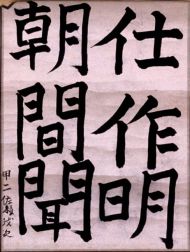 仕作明
朝間聞
甲二 佐